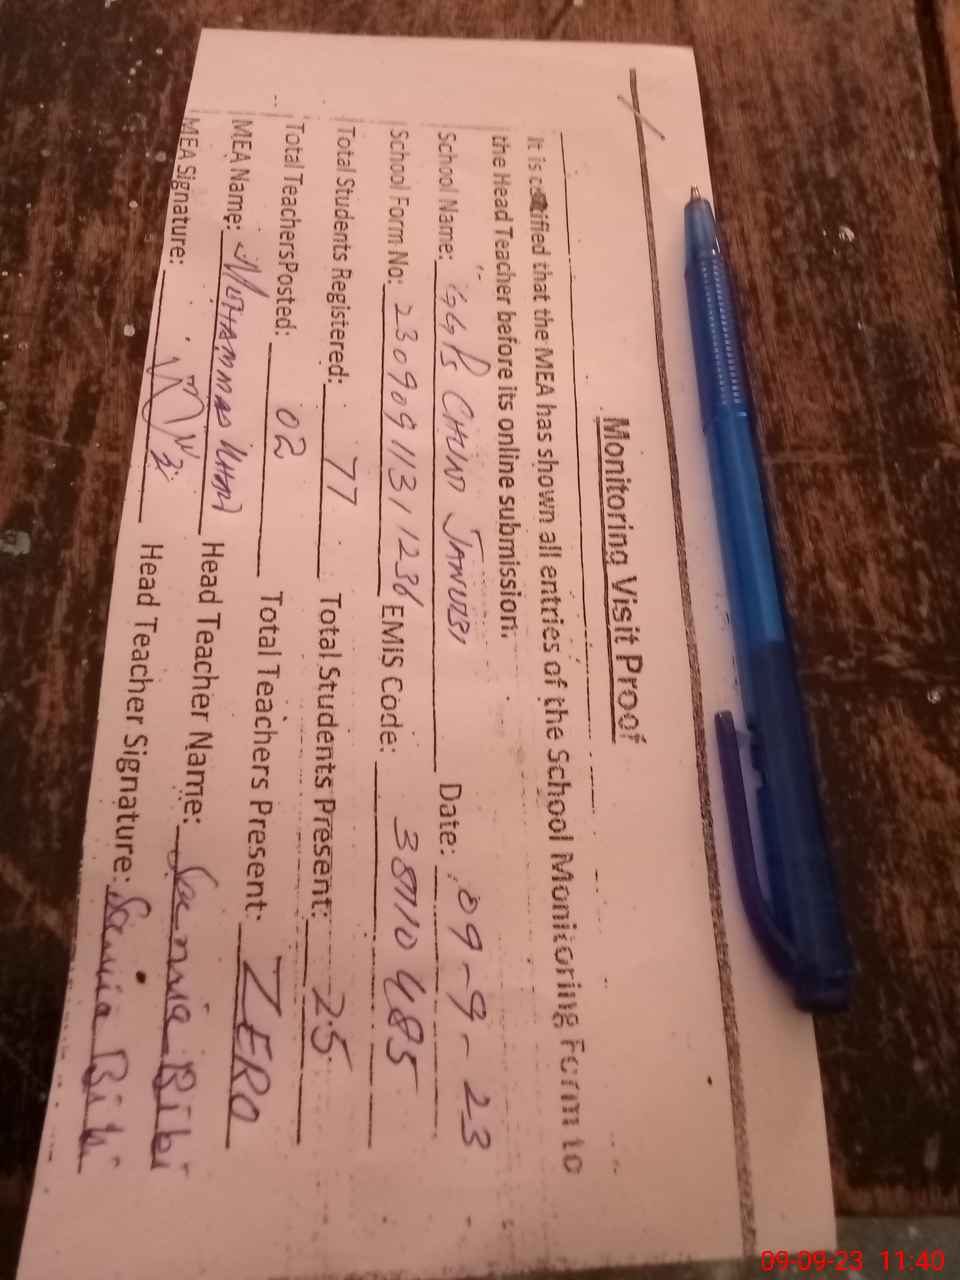 Monitoring Visit Proof
It is certified that the MEA has shown all entries of the School Monitoring Form to
the Head Teacher before its online submission.
School Name: GGPS CHUND JANUBI Date: 09-9-23
School Form No: 23090911311236 EMIS Code: 38710485
Total Students Registered: 77 Total Students Present: 25
Total Teachers Posted: 02 Total Teachers Present: ZERO
MEA Name: MUHAMMAD KHAN Head Teacher Name: Samia Bibi
MEA Signature: Head Teacher Signature: Samia Bibi
09-09-23 11:40